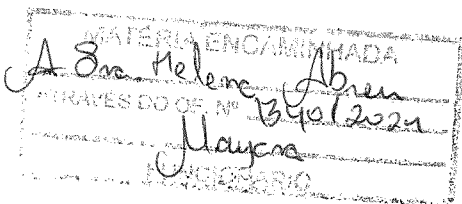 MATÉRIA ENCAMINHADA
A Sra. Helena Abreu
ATRAVÉS DO OF. Nº 1340/2021
Mayara
FUNCIONÁRIO